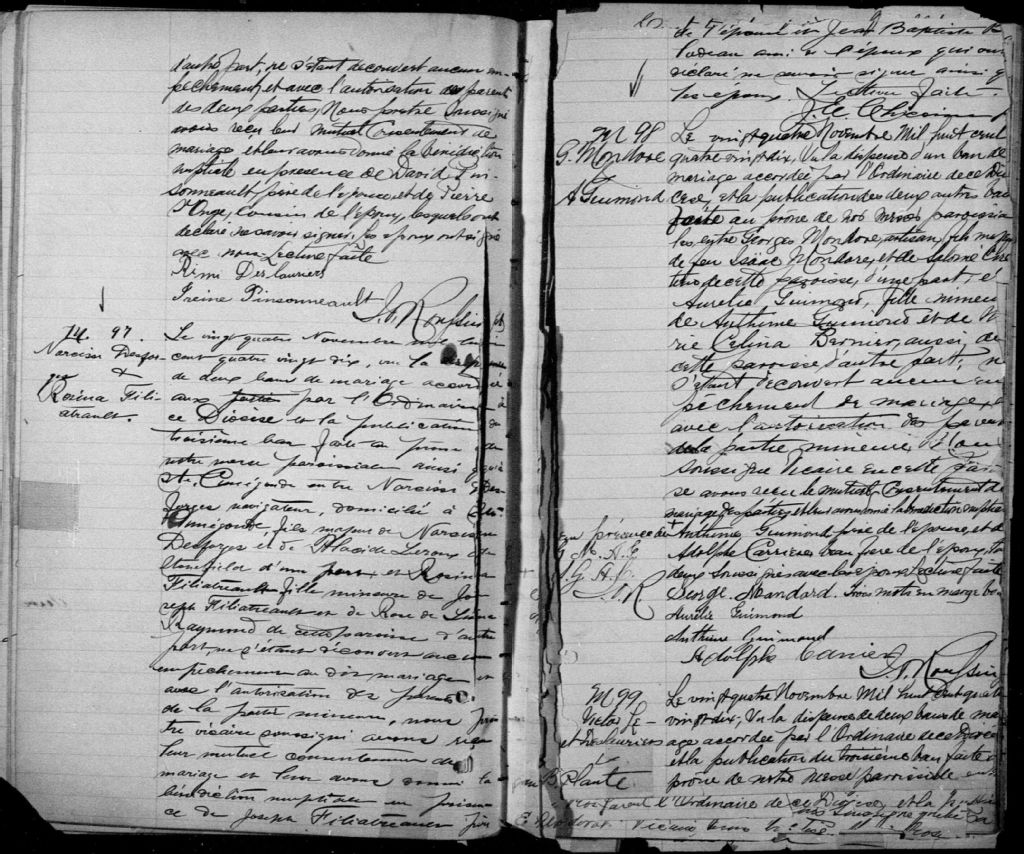 d'autre part, ne s'étant découvert aucun em-
pêchement et avec l'autorisation des parents
des deux parties, Nous prêtre soussigné
avons reçu leur mutuel consentement de
mariage et leur avons donné la bénédiction
nuptiale en présence de David Pin-
sonneault, père de l'épouse et de Pierre
St Onge, cousin de l'époux, lesquels ont
déclaré ne savoir signer. Les époux ont signé
avec nous. Lecture faite
Rémi Deslauriers
Irène Pinsonneault
97.
Narcisse Desfor-
ges
&
Rosina Filia-
trault.
Le vingt quatre Novembre mil huit
cent quatre vingt dix, vu la dispense
de deux bans de mariage accordée
aux parties par l'Ordinaire de
ce Diocèse et la publication du
troisième ban faite au prône de
notre messe paroissiale ainsi qu'à
Ste Cunégonde entre Narcisse Des-
forges navigateur, domicilié à Ste
Cunégonde, fils majeur de Narcisse
Desforges et de Placide Leroux de
d'une part et Rosina
Filiatreault fille mineure de Jo-
seph Filiatreault et de Rose de Lima
Raymond de cette paroisse d'autre
part, ne s'étant découvert aucun
empêchement au dit mariage et
avec l'autorisation des parents
de la partie mineure, nous prê-
tre vicaire soussigné avons reçu
leur mutuel consentement de
mariage et leur avons donné la
bénédiction nuptiale en présen-
ce de Joseph Filiatreault père
de l'épouse et Jean Baptiste
ami de l'époux qui ont
déclaré ne savoir signer ainsi q
les époux. Lecture faite.
M 98
G. Mondore
A Guimond
Le vingt quatre Novembre Mil huit cent
quatre vingt dix, Vu la dispense d'un ban de
mariage accordée par l'Ordinaire de ce Dio
cèse, et la publication des deux autres bans
faite au prône de nos messes paroissia
les entre Georges Mondore, artisan, fils majeur
de feu Isaac Mondore, et de Salomé
de cette paroisse, d'une part, et
Aurélie Guimond, fille mineure
de Anthime Guimond et de Ma
rie Célina Bernier, aussi de
cette paroisse d'autre part, ne
s'étant découvert aucun em
pêchement de mariage, et
avec l'autorisation des parents
de la partie mineure, Nous
soussigné Vicaire en cette parois
se avons reçu le mutuel consentement de
mariage des parties, et leur avons donné la bénédiction nuptiale
en présence de + Anthime Guimond père de l'épouse, et de
G. M. A. G.
A. G. A. C.
Adolphe Carrière beau frère de l'époux, tous
deux soussignés avec les époux. Lecture faite
George Mandard. Trois mots en marge bons
Aurélie Guimond
Anthime Guimond
Adolphe Carrier
M 99
Le vingt quatre Novembre Mil huit cent quatre
vingt dix, Vu la dispense de deux bans de mari
age accordée par l'Ordinaire de ce Diocèse
et la publication du troisième ban faite au
prône de notre messe paroissiale
Plante
l'Ordinaire de ce Diocèse, et la